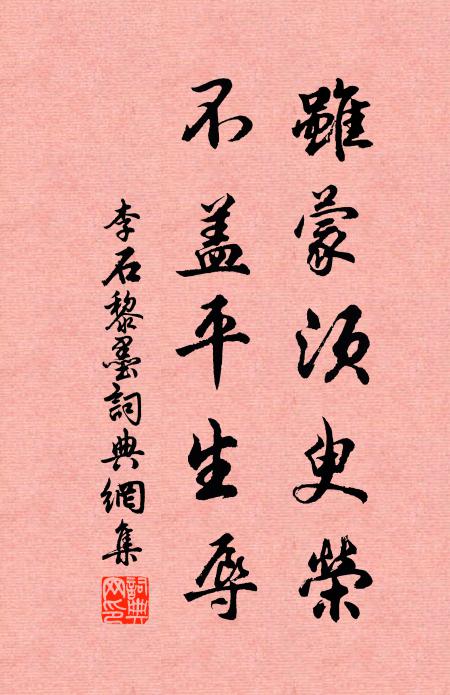 雖蒙須臾榮
不蓋平生辱
李石黎墨詞典網集
詞典
網印